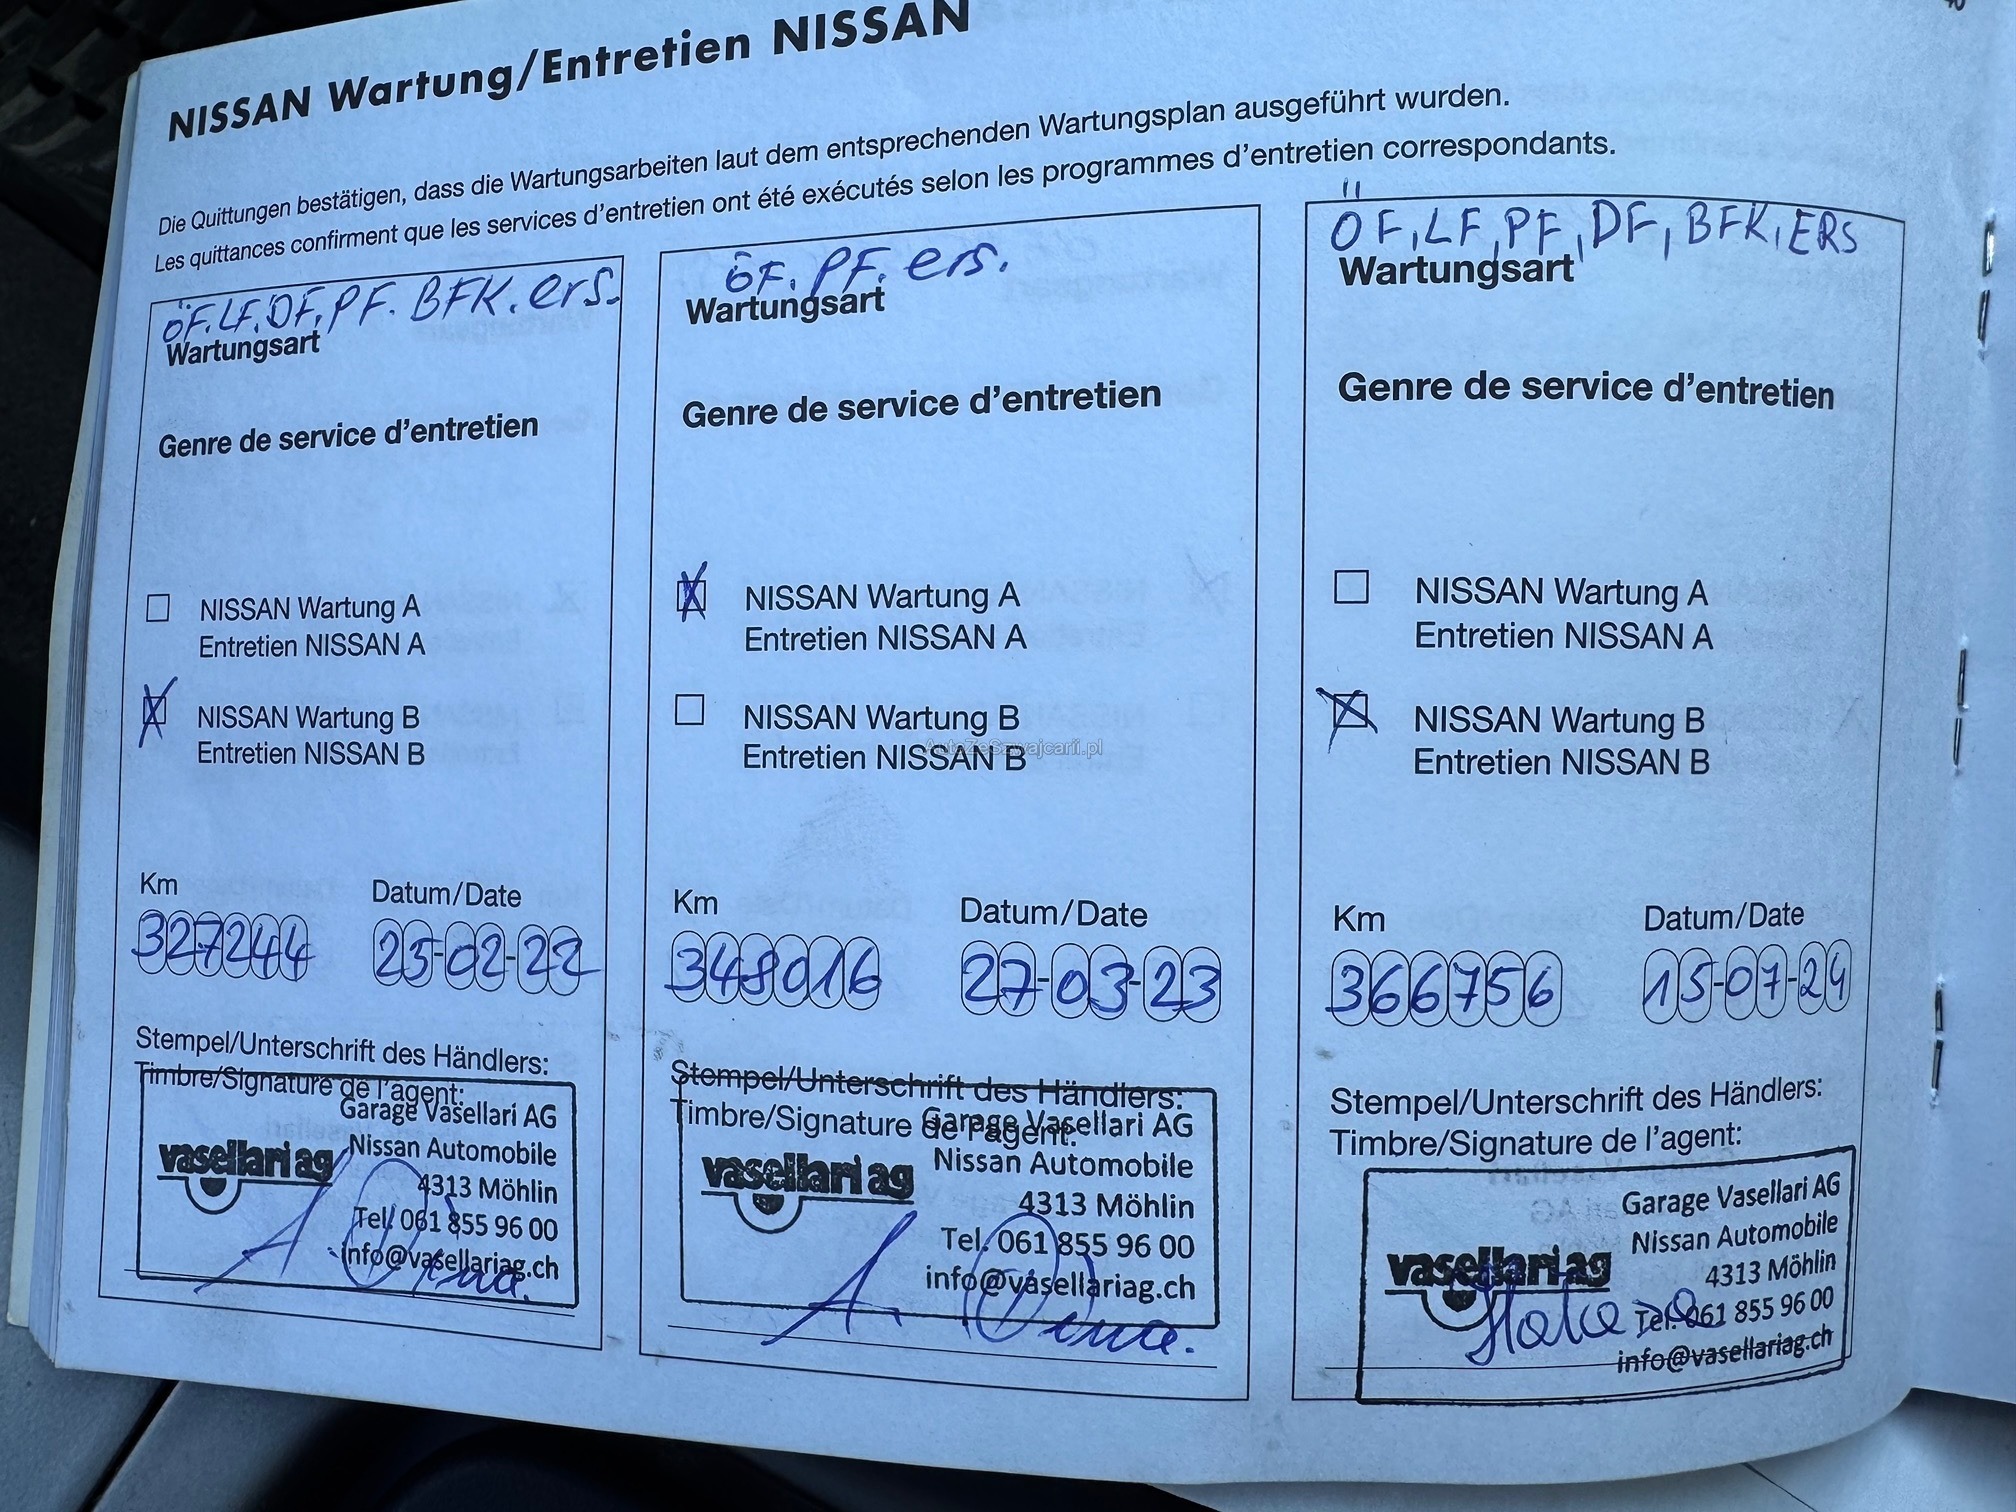 NISSAN Wartung/Entretien NISSAN
Die Quittungen bestätigen, dass die Wartungsarbeiten laut dem entsprechenden Wartungsplan ausgeführt wurden.
Les quittances confirment que les services d'entretien ont été exécutés selon les programmes d'entretien correspondants.
ÖF. LF. DF. PF. BFK. ers.
Wartungsart
Genre de service d'entretien
NISSAN Wartung A
Entretien NISSAN A
X
NISSAN Wartung B
Entretien NISSAN B
Km
Datum/Date
327244
23-02-22
Stempel/Unterschrift des Händlers:
Timbre/Signature de l'agent:
Garage Vasellari AG
vasellari ag
Nissan Automobile
4313 Möhlin
Tel. 061 855 96 00
info@vasellariag.ch
ÖF. PF. ers.
Wartungsart
Genre de service d'entretien
X
NISSAN Wartung A
Entretien NISSAN A
NISSAN Wartung B
Entretien NISSAN B
AutoZeSzwajcarii.pl
Km
Datum/Date
348016
27-03-23
Stempel/Unterschrift des Händlers:
Timbre/Signature de l'agent:
Garage Vasellari AG
vasellari ag
Nissan Automobile
4313 Möhlin
Tel. 061 855 96 00
info@vasellariag.ch
ÖF, LF, PF, DF, BFK, ERS
Wartungsart
Genre de service d'entretien
NISSAN Wartung A
Entretien NISSAN A
X
NISSAN Wartung B
Entretien NISSAN B
Km
Datum/Date
366756
15-07-24
Stempel/Unterschrift des Händlers:
Timbre/Signature de l'agent:
Garage Vasellari AG
Nissan Automobile
vasellari ag
4313 Möhlin
Tel. 061 855 96 00
info@vasellariag.ch